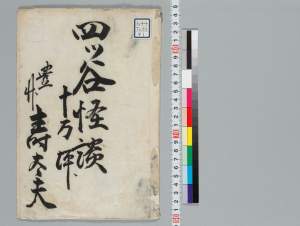 四ツ谷怪談
十万坪
豊竹寿太夫